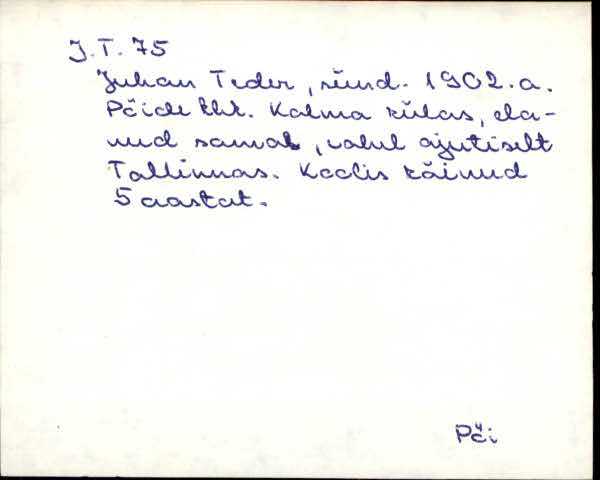 J.T. 75
Juhan Teder, sünd. 1902. a.
Pöide khk. Kalma külas, ela-
nud samas, vahel ajutiselt
Tallinnas. Koolis käinud
5 aastat.
Pöi